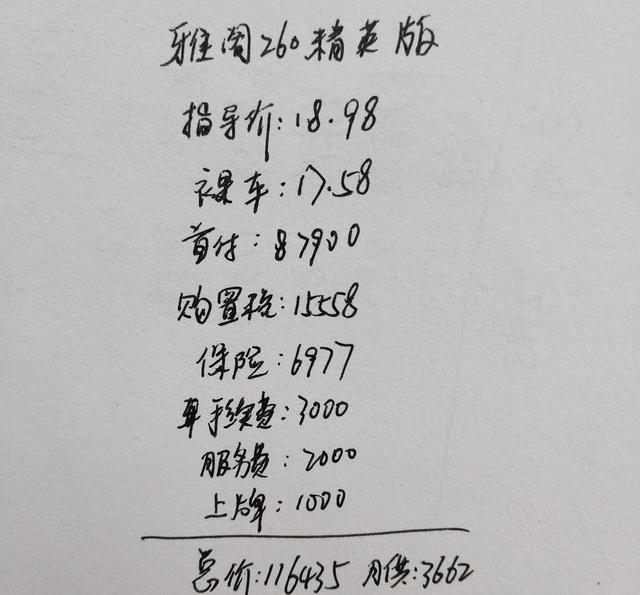 雅阁260精英版
指导价:18.98
裸车:17.58
首付:87900
购置税:15558
保险:6977
单手续费:3000
服务费:2000
上牌:1000
总价:116435 月供:3662